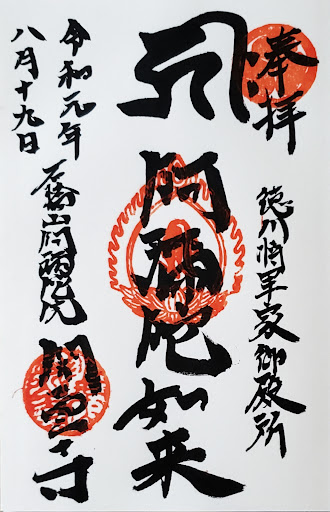 奉拝
徳川将軍家御殿所
阿彌陀如来
令和元年
八月十九日
山阿彌陀院
寺